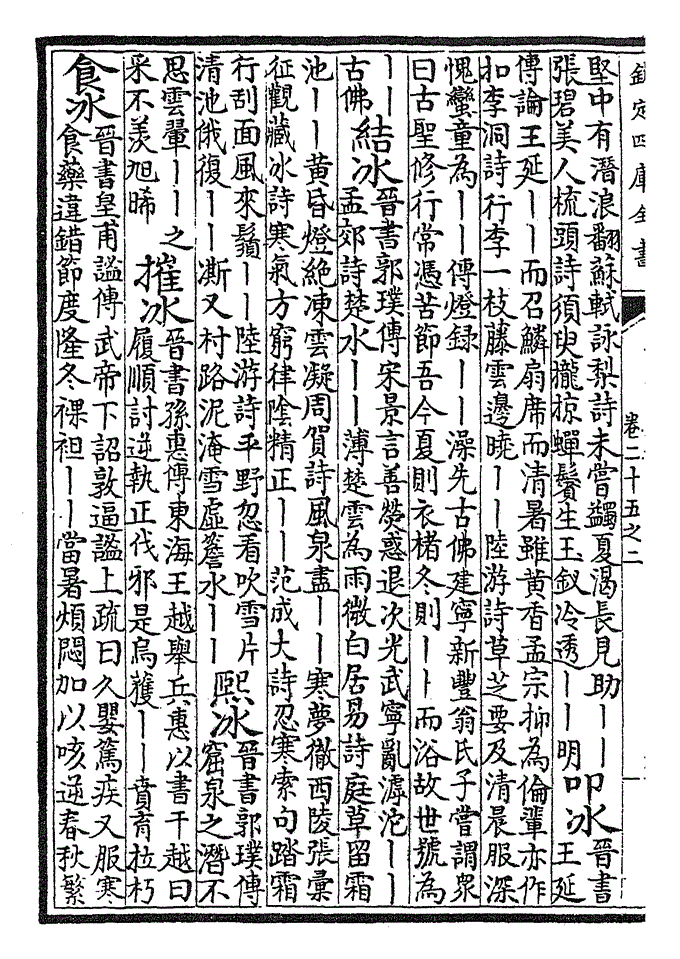 欽定四庫全書
卷二十五之二
堅中有潛浪翻蘇軾詠梨詩未嘗蠲夏渴長見助丨丨
張碧美人梳頭詩須臾攏掠蟬鬢生玉釵冷透丨丨明
叩冰
晉書
王延
傳論王延丨丨而召鱗扇席而清暑雖黃香孟宗抑為倫輩亦作
扣李洞詩行李一枝藤雲邊曉丨丨陸游詩草芝要及清晨服深
愧蠻童為丨丨傳燈録丨丨澡先古佛建寧新豐翁氏子嘗謂眾
曰古聖修行常憑苦節吾今夏則衣楮冬則丨丨而浴故世號為
丨丨
古佛
結冰
晉書郭璞傳宋景言善熒惑退次光武寧亂滹沱丨丨
孟郊詩楚水丨丨薄楚雲為雨微白居易詩庭草留霜
池丨丨黃昏燈絕凍雲凝周賀詩風泉盡丨丨寒夢徹西陵張彙
征觀藏冰詩寒氣方窮律陰精正丨丨范成大詩忍寒索句踏霜
行刮面風來鬚丨丨陸游詩平野忽看吹雪片
清池俄復丨丨澌又村路泥淹雪虛簷水丨丨
熙冰
晉書郭璞傳
窟泉之潛不
思雲翬丨丨之
采不羨旭晞
摧冰
晉書孫惠傳東海王越舉兵惠以書干越曰
履順討逆執正伐邪是烏獲丨丨賁育拉朽
食冰
晉書皇甫謐傳武帝下詔敦逼謐上疏曰久嬰篤疾又服寒
食藥違錯節度隆冬裸袒丨丨當暑煩悶加以咳逆春秋繁